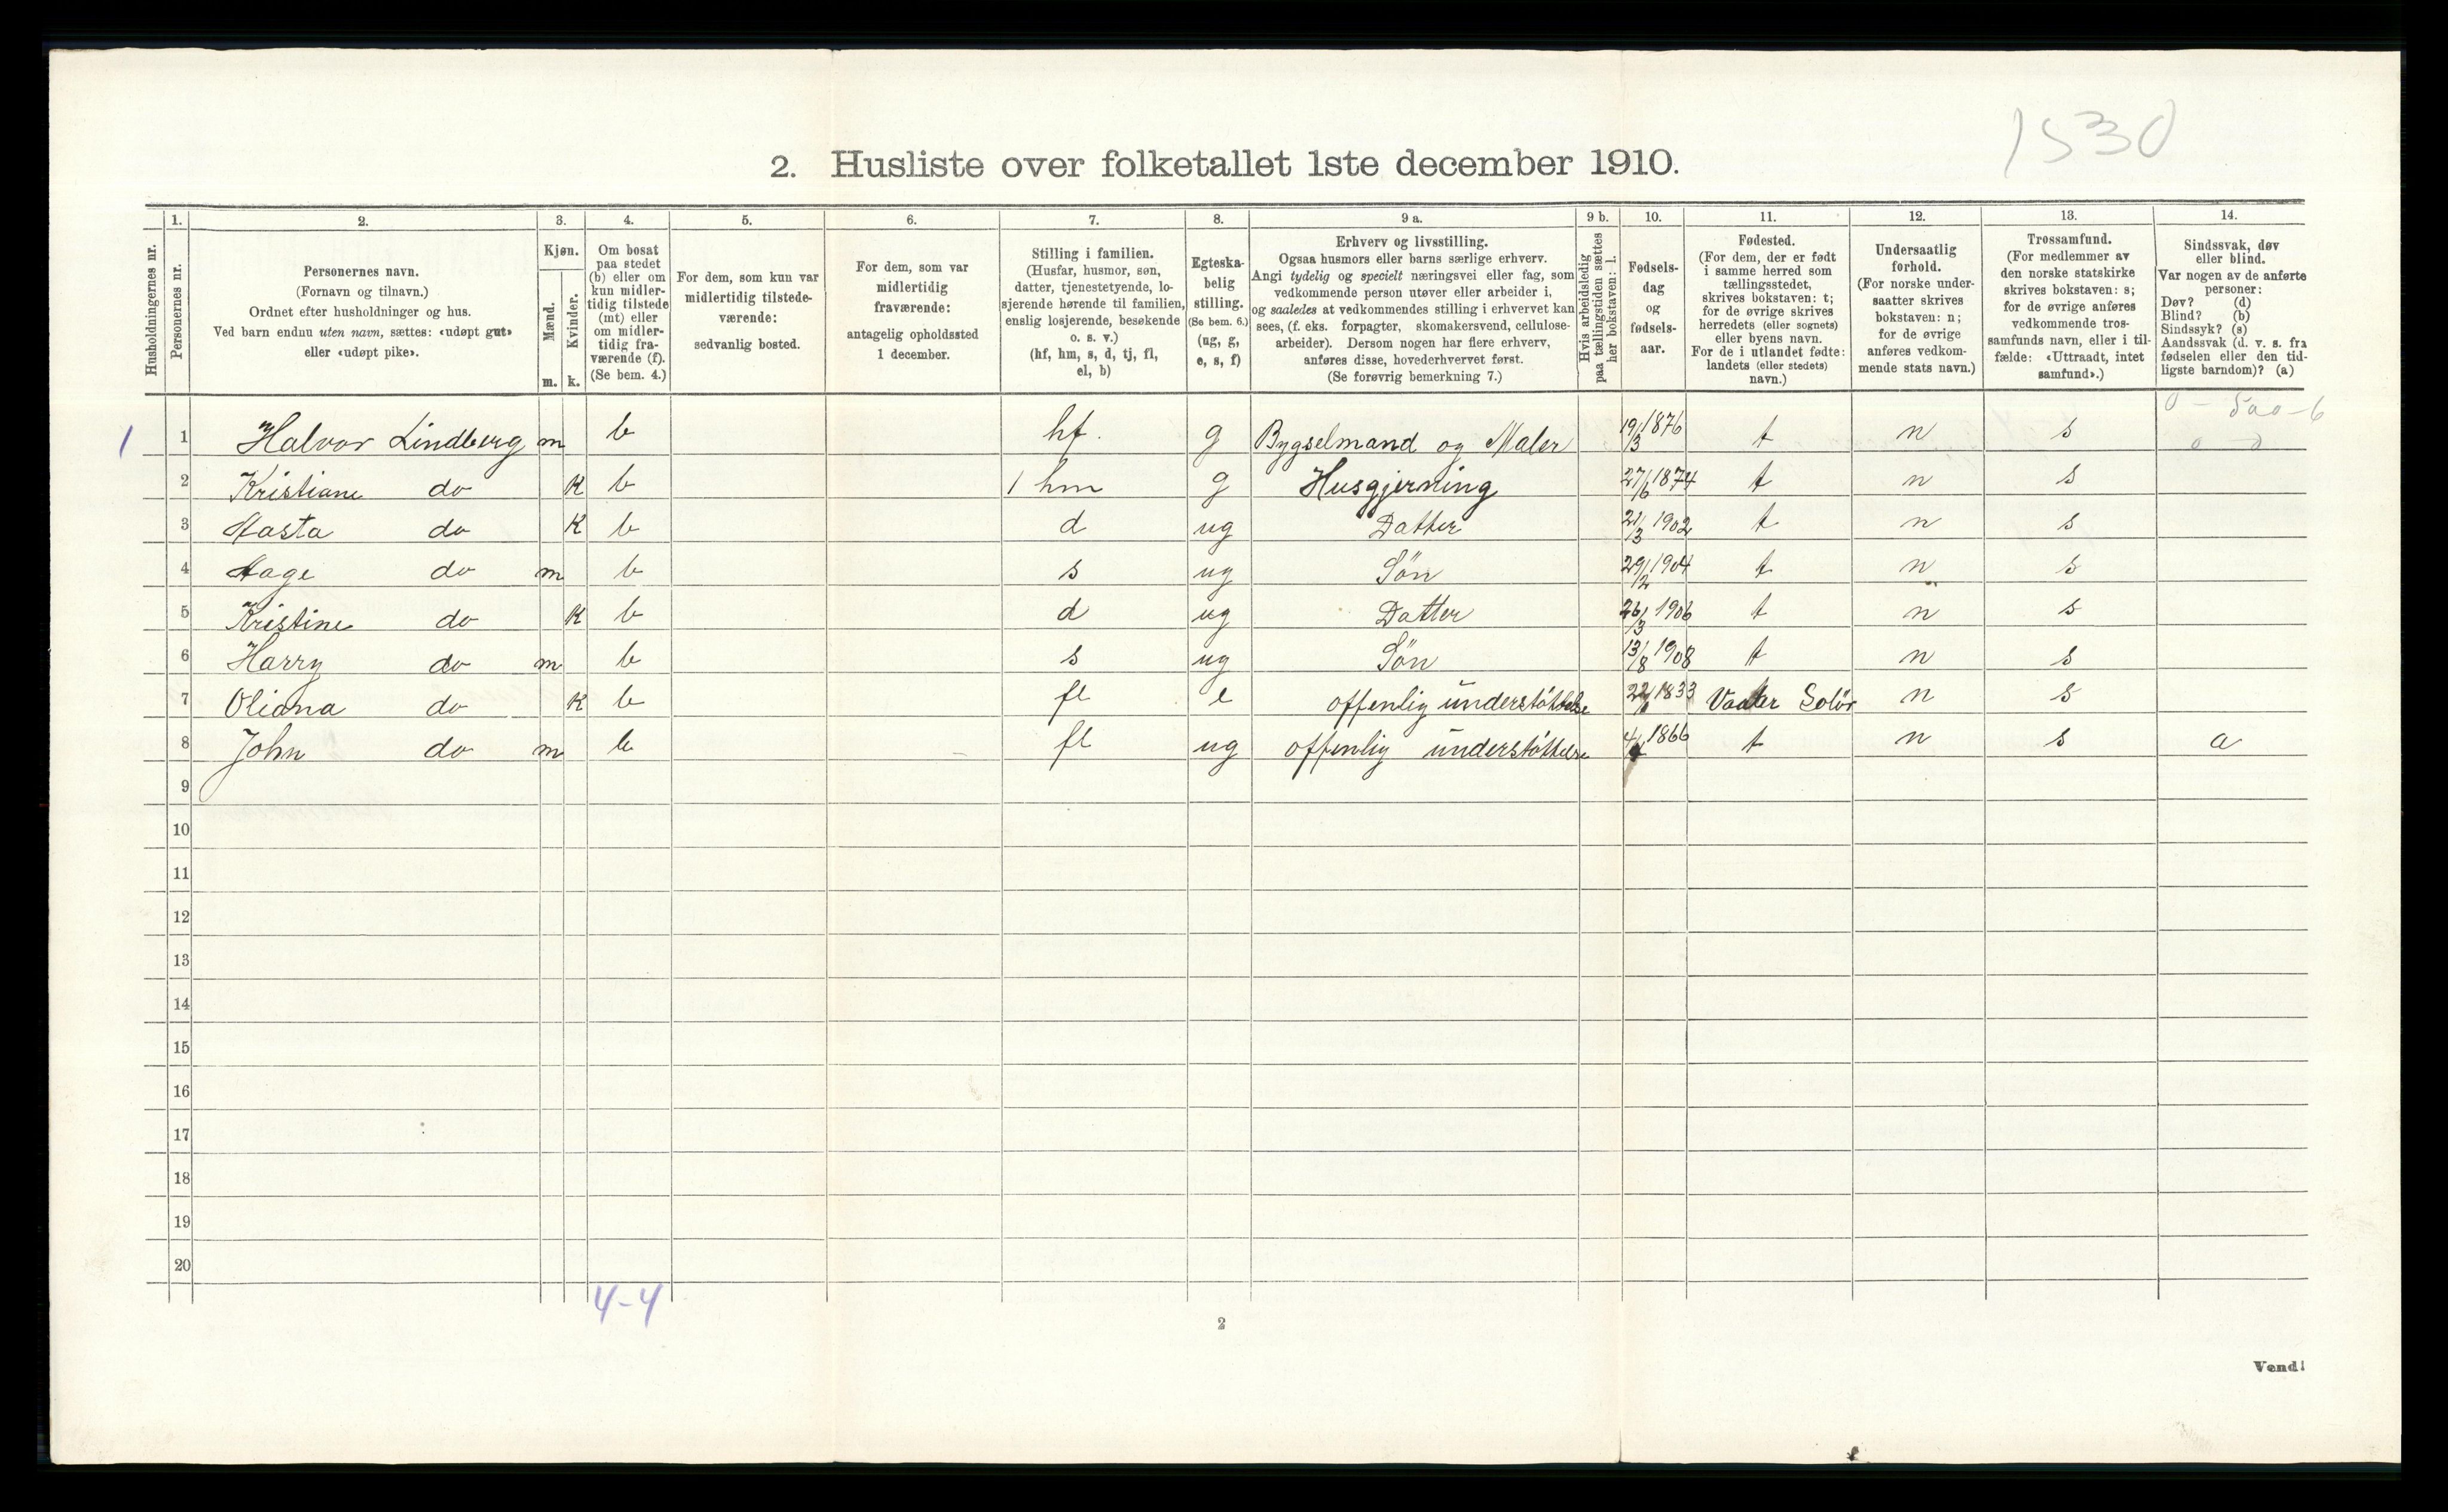 1530
2. Husliste over folketallet 1ste december 1910.
Husholdningernes nr.
1.
Personernes nr.
2.
Personernes navn.
(Fornavn og tilnavn.)
Ordnet efter husholdninger og hus.
Ved barn endnu uten navn, sættes: «udøpt gut»
eller «udøpt pike».
3.
Kjøn.
Mænd.
m.
Kvinder.
k.
4.
Om bosat
paa stedet
(b) eller om
kun midler-
tidig tilstede
(mt) eller
om midler-
tidig fra-
værende (f).
(Se bem. 4.)
5.
For dem, som kun var
midlertidig tilstede-
værende:
sedvanlig bosted.
6.
For dem, som var
midlertidig
fraværende:
antagelig opholdssted
1 december.
7.
Stilling i familien.
(Husfar, husmor, søn,
datter, tjenestetyende, lo-
sjerende hørende til familien,
enslig losjerende, besøkende
o. s. v.)
(hf, hm, s, d, tj, fl,
el, b)
8.
Egteska-
belig
stilling.
(Se bem. 6.)
(ug, g,
e, s, f)
9 a.
Erhverv og livsstilling.
Ogsaa husmors eller barns særlige erhverv.
Angi tydelig og specielt næringsvei eller fag, som
vedkommende person utøver eller arbeider i,
og saaledes at vedkommendes stilling i erhvervet kan
sees, (f. eks. forpagter, skomakersvend, cellulose-
arbeider). Dersom nogen har flere erhverv,
anføres disse, hovederhvervet først.
(Se forøvrig bemerkning 7.)
9 b.
Hvis arbeidsledig
paa tællingstiden sættes
her bokstaven: l.
10.
Fødsels-
dag
og
fødsels-
aar.
11.
Fødested.
(For dem, der er født
i samme herred som
tællingsstedet,
skrives bokstaven: t;
for de øvrige skrives
herredets (eller sognets)
eller byens navn.
For de i utlandet fødte:
landets (eller stedets)
navn.)
12.
Undersaatlig
forhold.
(For norske under-
saatter skrives
bokstaven: n;
for de øvrige
anføres vedkom-
mende stats navn.)
13.
Trossamfund.
(For medlemmer av
den norske statskirke
skrives bokstaven: s;
for de øvrige anføres
vedkommende tros-
samfunds navn, eller i til-
fælde: «Uttraadt, intet
samfund».)
14.
Sindssvak, døv
eller blind.
Var nogen av de anførte
personer:
Døv? (d)
Blind? (b)
Sindssyk? (s)
Aandssvak (d. v. s. fra
fødselen eller den tid-
ligste barndom)? (a)
0 - 500-6
0 0
1 1 Halvor Lindberg m b hf. g Bygselmand og Maler 19/3 1876 t n s
2 Kristiane do K b 1 hm g Husgjerning 27/6 1874 t n s
3 Aasta do K b d ug Datter 21/3 1902 t n s
4 Aage do m b s ug Sön 29/2 1904 t n s
5 Kristine do K b d ug Datter 26/3 1906 t n s
6 Harry do m b s ug Sön 13/8 1908 t n s
7 Oliana do K b fl e offenlig understöttelse 1833 Vaaler Solör n s
8 John do m b fl ug offenlig understöttelse 1866 t n s a
9
10
11
12
13
14
15
16
17
18
19
20
4-4
2
Vend!